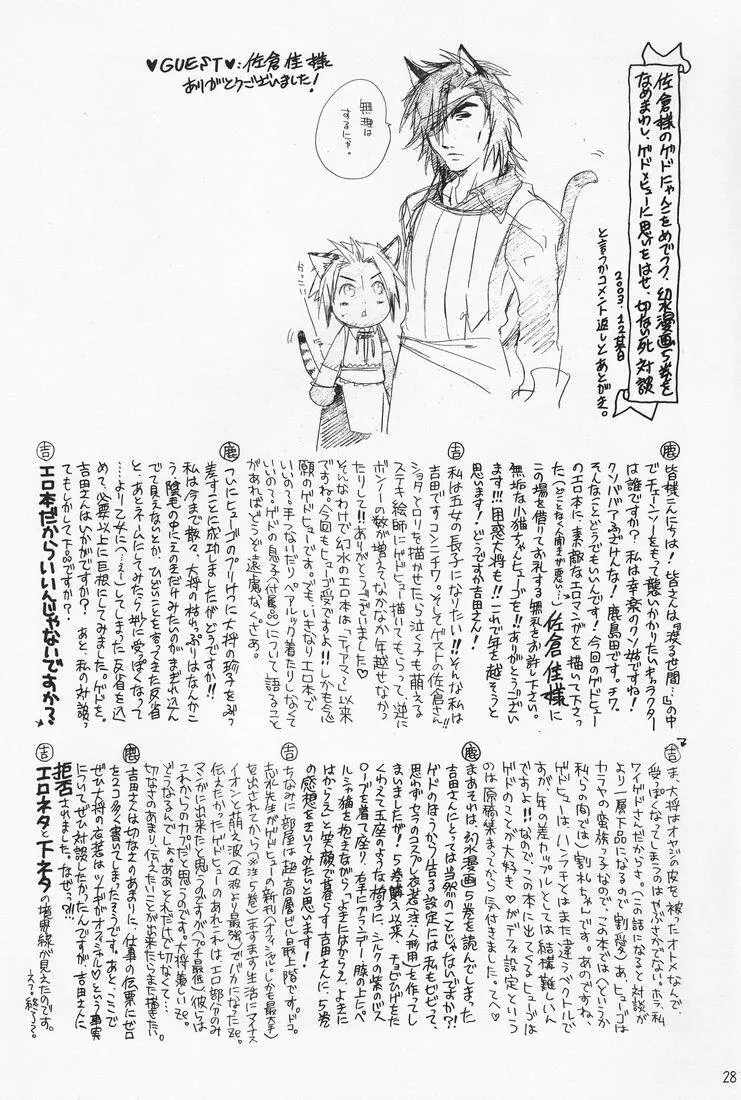 ♥GUEST♥:佐倉佳様
ありがとうございました!
無理は
するにゃ。
かっこいい
佐倉様のゲドにゃんこをめでつつ、幻水漫画5巻を
なめまわし、ゲド×ヒューに思いをはせ、切ない死対談
2003.12某日
と言うかコメント返しとあとがき。
鹿
皆様こんにちは!皆さんは「渡る世間…」の中
でチェーンソーをもって襲いかかりたいキャラクター
は誰ですか?私は幸楽のクソ姑ですね!
クソババアふざけんな!鹿島田です。チワ。
そんなことどうでもいんです!今回のゲドヒュー
のエロ本に、素敵なエロマンガを描いて下さっ
た(どことなく人聞きが悪い…)佐倉佳様に
この場を借りてお礼する無礼をお許し下さい。
無垢な小猫ちゃんヒューゴを!!ありがとうござい
ます!!!困惑大将も!!これで年を越そうと
思います!どうですか吉田さん!
吉
私は五女の長子になりたい!!そんな私は
吉田ですコンニチワ。そしてゲストの佐倉さん!!
ショタとロリを描かせたら泣く子も萌える
ステキ絵師にゲドヒュー描いてもらって、逆に
ボンノーの数が増えてなかなか年越せなかっ
たりして!!ありがとうございました♡
そんなわけで幻水のエロ本は「ティアマ〜」以来
ですね。今回もヒューゴ受ですよ!!しかも念
願のゲドヒューです。でも、いきなりエロ本で
いいの?手つないだり、ペアルック着たりしなくて
いいの?ゲドの息子(付属品)について語ること
があればどうぞ遠慮なくさあ。
鹿
ついにヒューゴのプリけつに大将の珍子をぶっ
差すことに成功しましたがどうですか!!
私は今まで散々、大将の枯れっぷりはなんかこ
う、陰毛の中にえのきだけみたいのがまぎれ込ん
で見えないとか、ひどいことを言ってきた反省
と、あとネームにしてみたら妙に受っぽくなって
…より乙女に(へぇー)してしまった反省を込
めて、必要以上に巨根にしてみました。ゲドを。
吉田さんはいかがですか?あと、私の対談っ
てもしかして下品ですか?
吉
エロ本だからいいんじゃないですか?
吉
ま、大将はオヤジの皮を被ったオトメなんで、
受っぽくなってしまうのはやぶさかでない。ホラ、私
ワイゲドさんだからさ。(この話になると対談が
より一層下品になるので割愛)あ、ヒューゴは
カラヤの蛮族っ子なので、この本では(というか
私らの間では)割礼ちゃんです。あのですね、
ゲドヒューは、ハンチチとはまた違うベクトルで
すが、年の差カップルとしては結構難しいん
ですよ!!なので、この本に出てくるヒューゴは
ゲドのことが大好き♡がデフォ設定という
のは原稿集まってから気付きました。てへ♡
鹿
まあそれは、幻水漫画5巻を読んでしまった
吉田さんにとっては当然のことじゃないですか?!
ゲドのほうっから告る設定には私もビビって、
思わずセラのコスプレ衣装(注:人形用)を作ってし
まいましたが!5巻購入以来、チョビひげをた
くわえて玉座のような椅子に、シルクの紫のバス
ローブを着て座り、右手にブランデー膝の上にペ
ルシャ猫を抱えながら、「よきにはからえ、よきに
はからえ」と笑顔で暮らす吉田さんに、5巻
の感想をきいてみたいと思います!
吉
ちなみに部屋は超高層ビル最上階です。ドコ。
志水先生がゲドヒューの新刊(オフィシャル。しかも最大手)
を出されてから(※注:5巻)ますます生活にマイナス
イオンと萌え波(α波より最強)でバカになったze。
伝えたかったゲドヒューのあれこれは、エロ部分のみ
マンガに出来たと思うのですが(プチ最低)彼らは
これからの力だと思うのです。大将羨しいze。
どうなるんでしょ。ああ、そんだけで切なくて…
切なさのあまり、伝えたいことが出来たらまた描きたい。
鹿
吉田さんは切なさのあまりに、仕事の伝票にゼロ
を2コ多く書いてしまったそうです。あと、ここで
ぜひ大将の衣装はツナギがオフィシャル♡という事実
についてぜひ対談したかったんですが、吉田さんに
拒否されました。なぜっ?!!
吉
エロネタと下ネタの境界線が見えたのです。
28